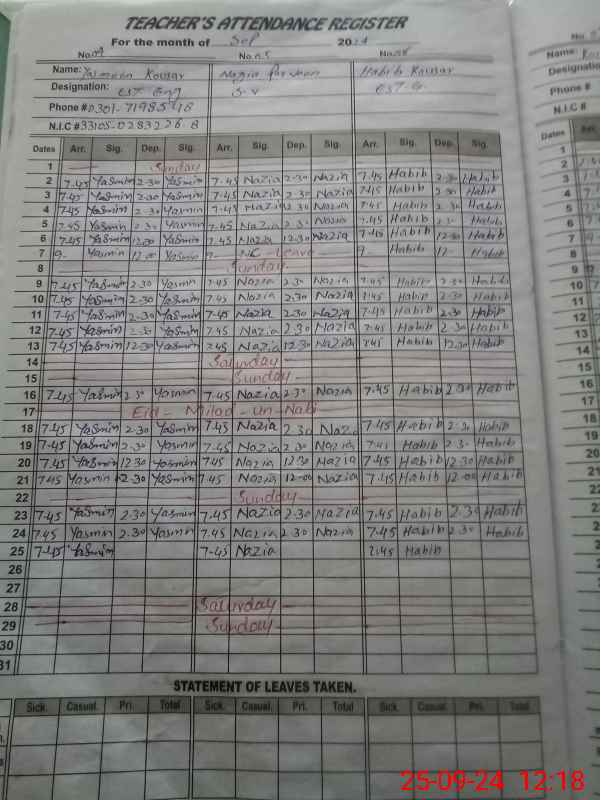 TEACHER'S ATTENDANCE REGISTER
For the month of Sep 2024
No. 04 No. 05 No.
Name: Yasmeen Kousar Nazia Parveen Habib Kousar
Designation: EST Eng S.V EST G.
Phone # 0301-7198548
N.I.C # 33105-0283226-8
Dates Arr. Sig. Dep. Sig. Arr. Sig. Dep. Sig. Arr. Sig. Dep. Sig.
1 Sunday
2 7-45 Yasmin 2-30 Yasmin 7-45 Nazia 2-30 Nazia 7-45 Habib 2-30 Habib
3 7-45 Yasmin 2-30 Yasmin 7-45 Nazia 2-30 Nazia 7-45 Habib 2-30 Habib
4 7-45 Yasmin 2-30 Yasmin 7-45 Nazia 2-30 Nazia 7-45 Habib 2-30 Habib
5 7-45 Yasmin 2-30 Yasmin 7-45 Nazia 2-30 Nazia 7-45 Habib 2-30 Habib
6 7-45 Yasmin 12-00 Yasmin 7-45 Nazia 12-30 Nazia 7-45 Habib 12-30 Habib
7 9- Yasmin 12-00 Yasmin 9- Leave 9- Habib 12- Habib
8 Sunday
9 7-45 Yasmin 2-30 Yasmin 7-45 Nazia 2-30 Nazia 7-45 Habib 2-30 Habib
10 7-45 Yasmin 2-30 Yasmin 7-45 Nazia 2-30 Nazia 7-45 Habib 2-30 Habib
11 7-45 Yasmin 2-30 Yasmin 7-45 Nazia 2-30 Nazia 7-45 Habib 2-30 Habib
12 7-45 Yasmin 2-30 Yasmin 7-45 Nazia 2-30 Nazia 7-45 Habib 2-30 Habib
13 7-45 Yasmin 12-30 Yasmin 7-45 Nazia 12-30 Nazia 7-45 Habib 12-30 Habib
14 Saturday
15 Sunday
16 7-45 Yasmin 2-30 Yasmin 7-45 Nazia 2-30 Nazia 7-45 Habib 2-30 Habib
17 Eid-Milad-un-Nabi
18 7-45 Yasmin 2-30 Yasmin 7-45 Nazia 2-30 Nazia 7-45 Habib 2-30 Habib
19 7-45 Yasmin 2-30 Yasmin 7-45 Nazia 2-30 Nazia 7-45 Habib 2-30 Habib
20 7-45 Yasmin 12-30 Yasmin 7-45 Nazia 12-30 Nazia 7-45 Habib 12-30 Habib
21 7-45 Yasmin 12-30 Yasmin 7-45 Nazia 12-00 Nazia 7-45 Habib 12-00 Habib
22 Sunday
23 7-45 Yasmin 2-30 Yasmin 7-45 Nazia 2-30 Nazia 7-45 Habib 2-30 Habib
24 7-45 Yasmin 2-30 Yasmin 7-45 Nazia 2-30 Nazia 7-45 Habib 2-30 Habib
25 7-45 Yasmin 7-45 Nazia 7-45 Habib
26
27
28 Saturday
29 Sunday
30
31
STATEMENT OF LEAVES TAKEN.
Sick. Casual. Pri. Total Sick. Casual. Pri. Total Sick. Casual. Pri. Total
25-09-24 12:18